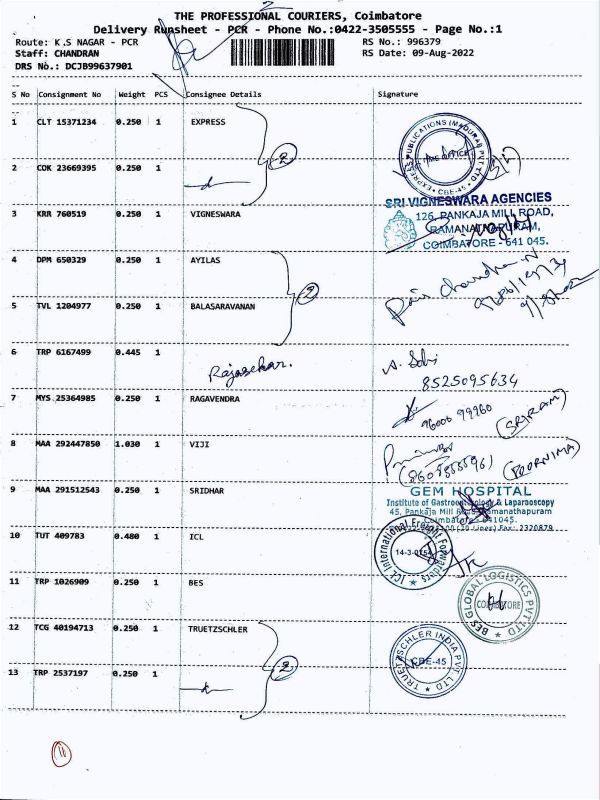 THE PROFESSIONAL COURIERS, Coimbatore
Delivery Runsheet - PCR - Phone No.:0422-3505555 - Page No.:1
Route: K.S NAGAR - PCR RS No.: 996379
Staff: CHANDRAN RS Date: 09-Aug-2022
DRS No.: DCJB99637901
S No Consignment No Weight PCS Consignee Details Signature
1 CLT 15371234 0.250 1 EXPRESS
EXPRESS PUBLICATIONS (MADURAI) PVT LTD
CBE-45
2
2 COK 23669395 0.250 1
SRI VIGNESWARA AGENCIES
3 KRR 760519 0.250 1 VIGNESWARA 126, PANKAJA MILL ROAD,
RAMANATHAPURAM,
COIMBATORE - 641 045.
4 DPM 650329 0.250 1 AYILAS
2
5 TVL 1204977 0.250 1 BALASARAVANAN
6 TRP 6167499 0.445 1
Rajasekar.
8525095634
7 MYS 25364985 0.250 1 RAGAVENDRA
(SRIRAM)
8 MAA 292447850 1.030 1 VIJI
(POORNIMA)
9 MAA 291512543 0.250 1 SRIDHAR GEM HOSPITAL
Institute of Gastroenterology & Laparoscopy
45, Pankaja Mill Road, Ramanathapuram
Coimbatore - 641045.
Fax: 2320879
10 TUT 409783 0.480 1 ICL
ICL International Freight Forwarders
11 TRP 1026909 0.250 1 BES
BES GLOBAL LOGISTICS PVT LTD
COIMBATORE
12 TCG 40194713 0.250 1 TRUETZSCHLER
TRUETZSCHLER INDIA PVT LTD
CBE-45
2
13 TRP 2537197 0.250 1
11